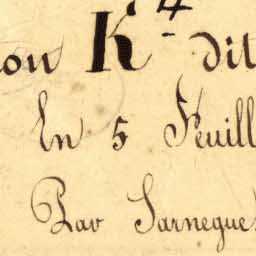 4
on K dit
En 5 Feuill
Par Sarnegue